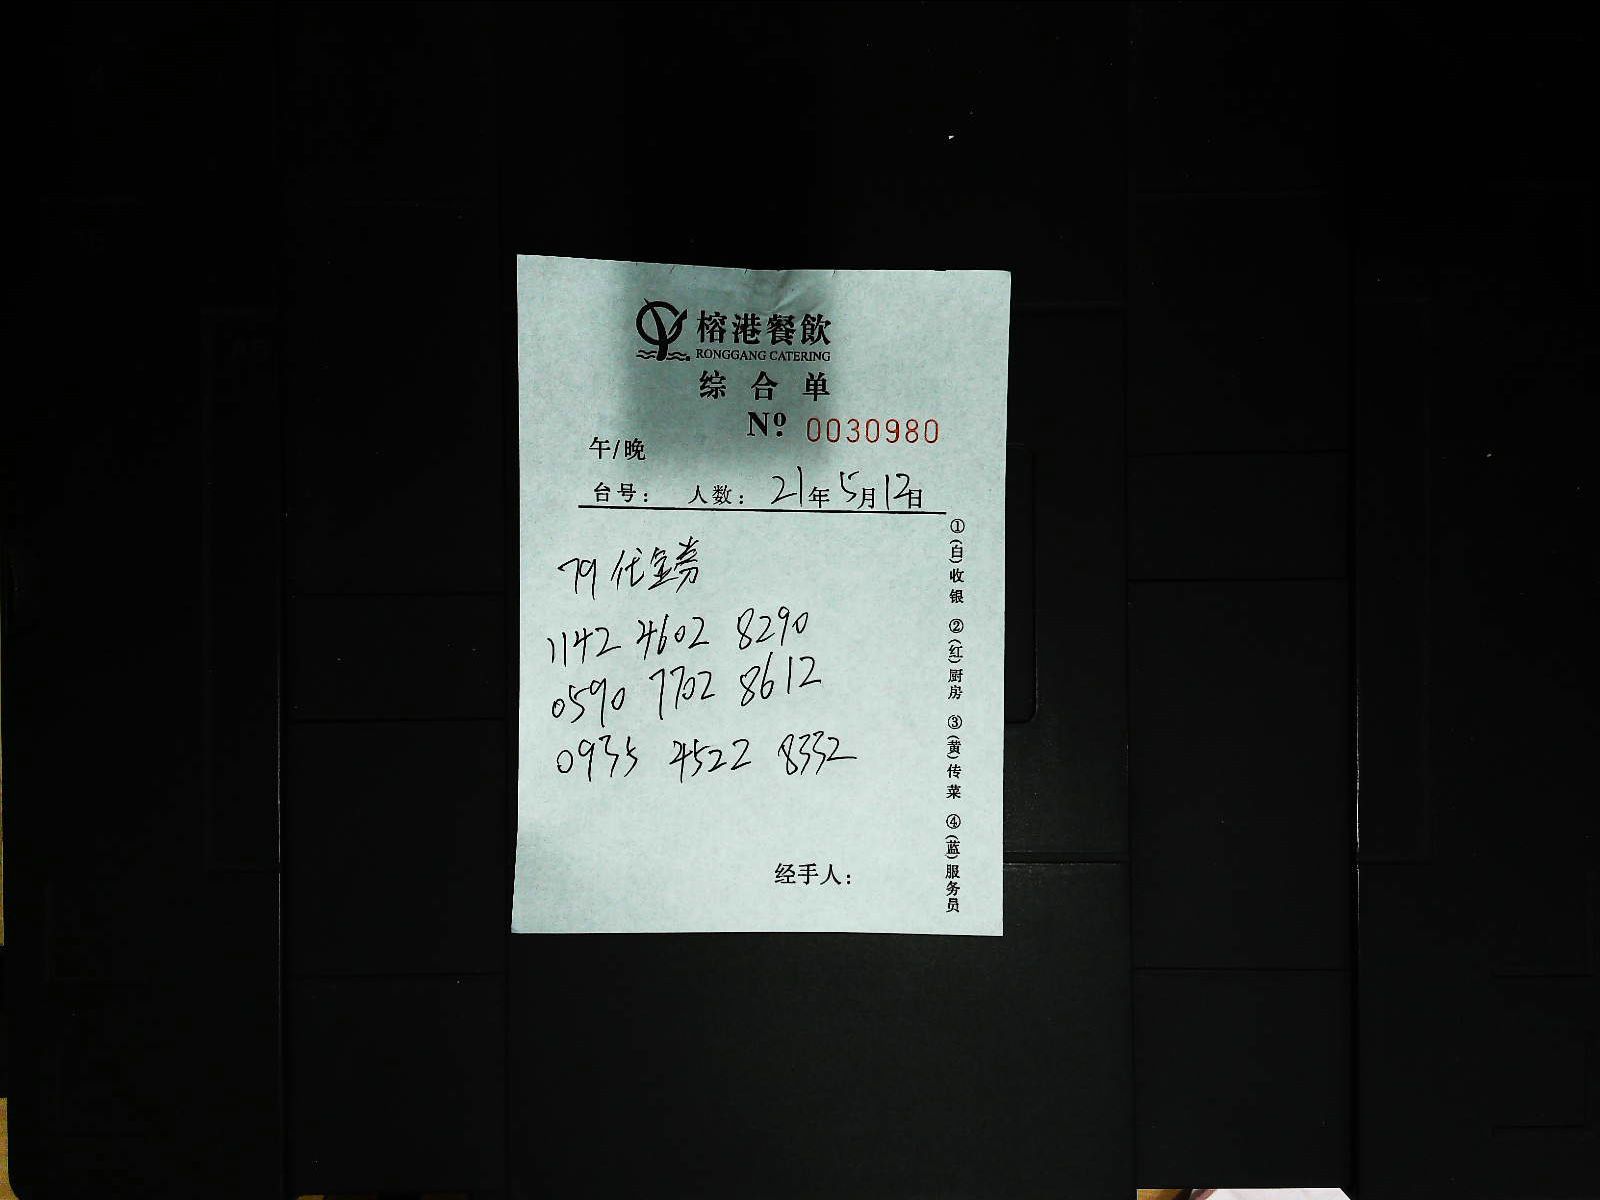 榕港餐飲
RONGGANG CATERING
综合单
Nº: 0030980
午/晚
台号: 人数: 21年5月12日
79代金券
1142 4602 8290
0590 7702 8612
0935 4522 8332
经手人:
①(白)收银 ②(红)厨房 ③(黄)传菜 ④(蓝)服务员